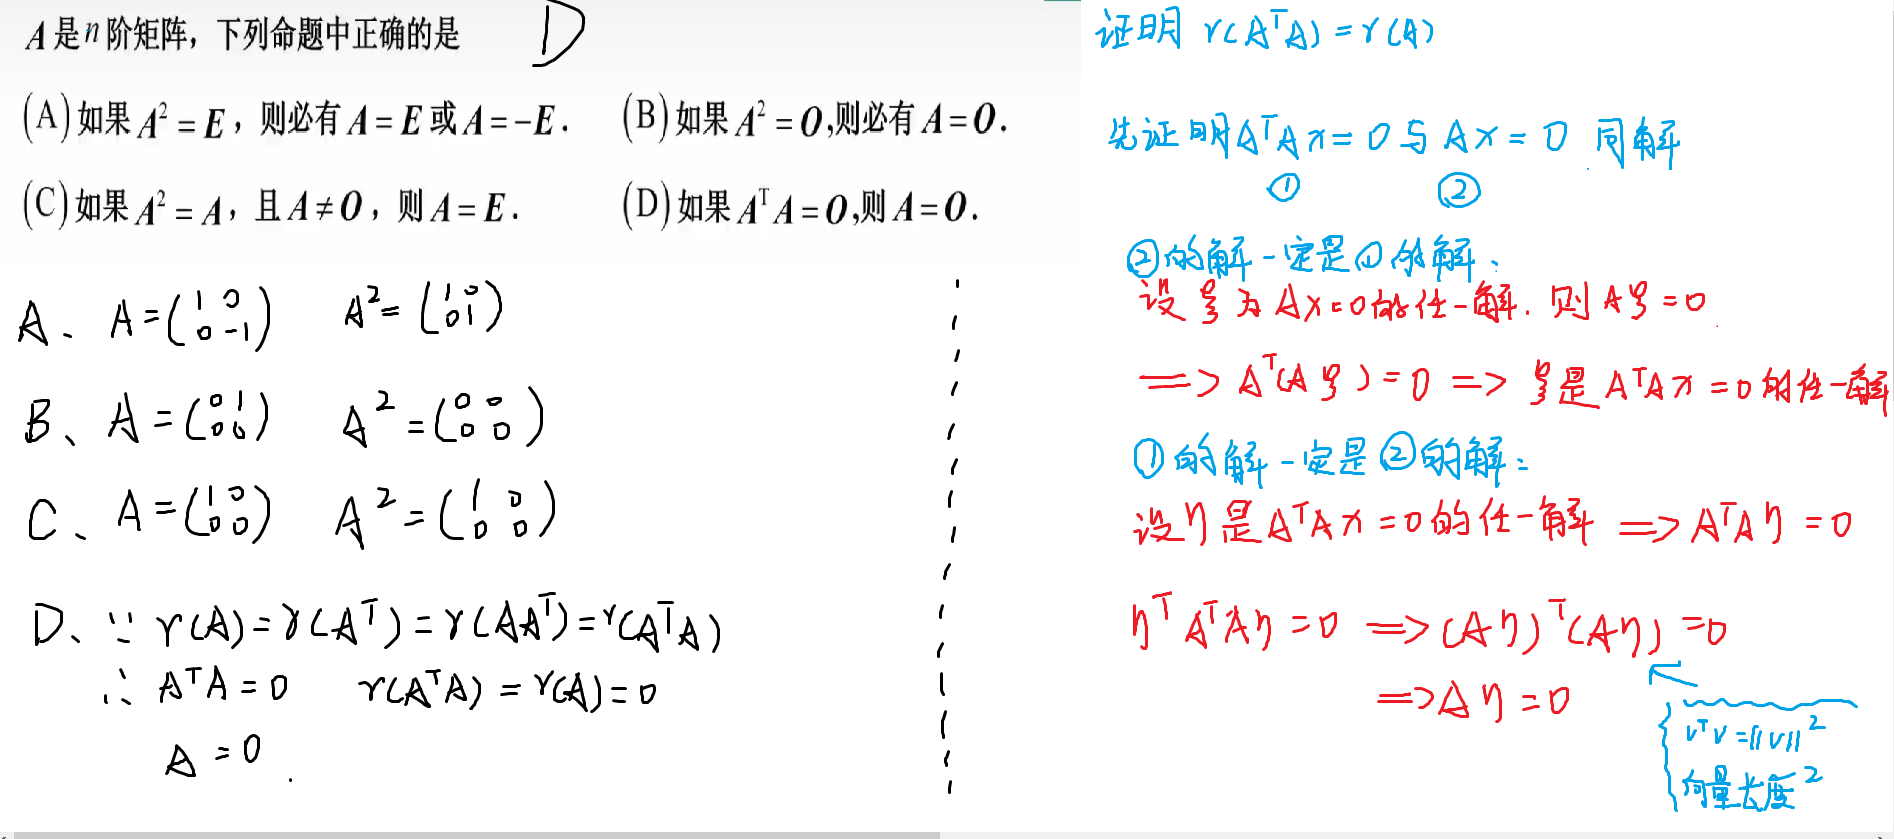 A是n阶矩阵，下列命题中正确的是 D
(A)如果 A² = E，则必有 A = E 或 A = -E. (B)如果 A² = O,则必有 A = O.
(C)如果 A² = A，且 A ≠ O，则 A = E. (D)如果 AᵀA = O,则 A = O.
A、 A = (1 0; 0 -1) A² = (1 0; 0 1)
B、 A = (0 1; 0 0) A² = (0 0; 0 0)
C、 A = (1 0; 0 0) A² = (1 0; 0 0)
D、 ∵ r(A) = r(Aᵀ) = r(AAᵀ) = r(AᵀA)
∴ AᵀA = 0 r(AᵀA) = r(A) = 0
A = 0.
证明 r(AᵀA) = r(A)
先证明 AᵀAx = 0 与 Ax = 0 同解.
① ②
②的解一定是①的解、
设ξ为Ax=0的任一解. 则 Aξ = 0
=> Aᵀ(Aξ) = 0 => ξ是 AᵀAx = 0 的任一解
①的解一定是②的解:
设η是 AᵀAx = 0 的任一解 => AᵀAη = 0
ηᵀAᵀAη = 0 => (Aη)ᵀ(Aη) = 0
=> Aη = 0
vᵀv = ||v||²
向量长度²